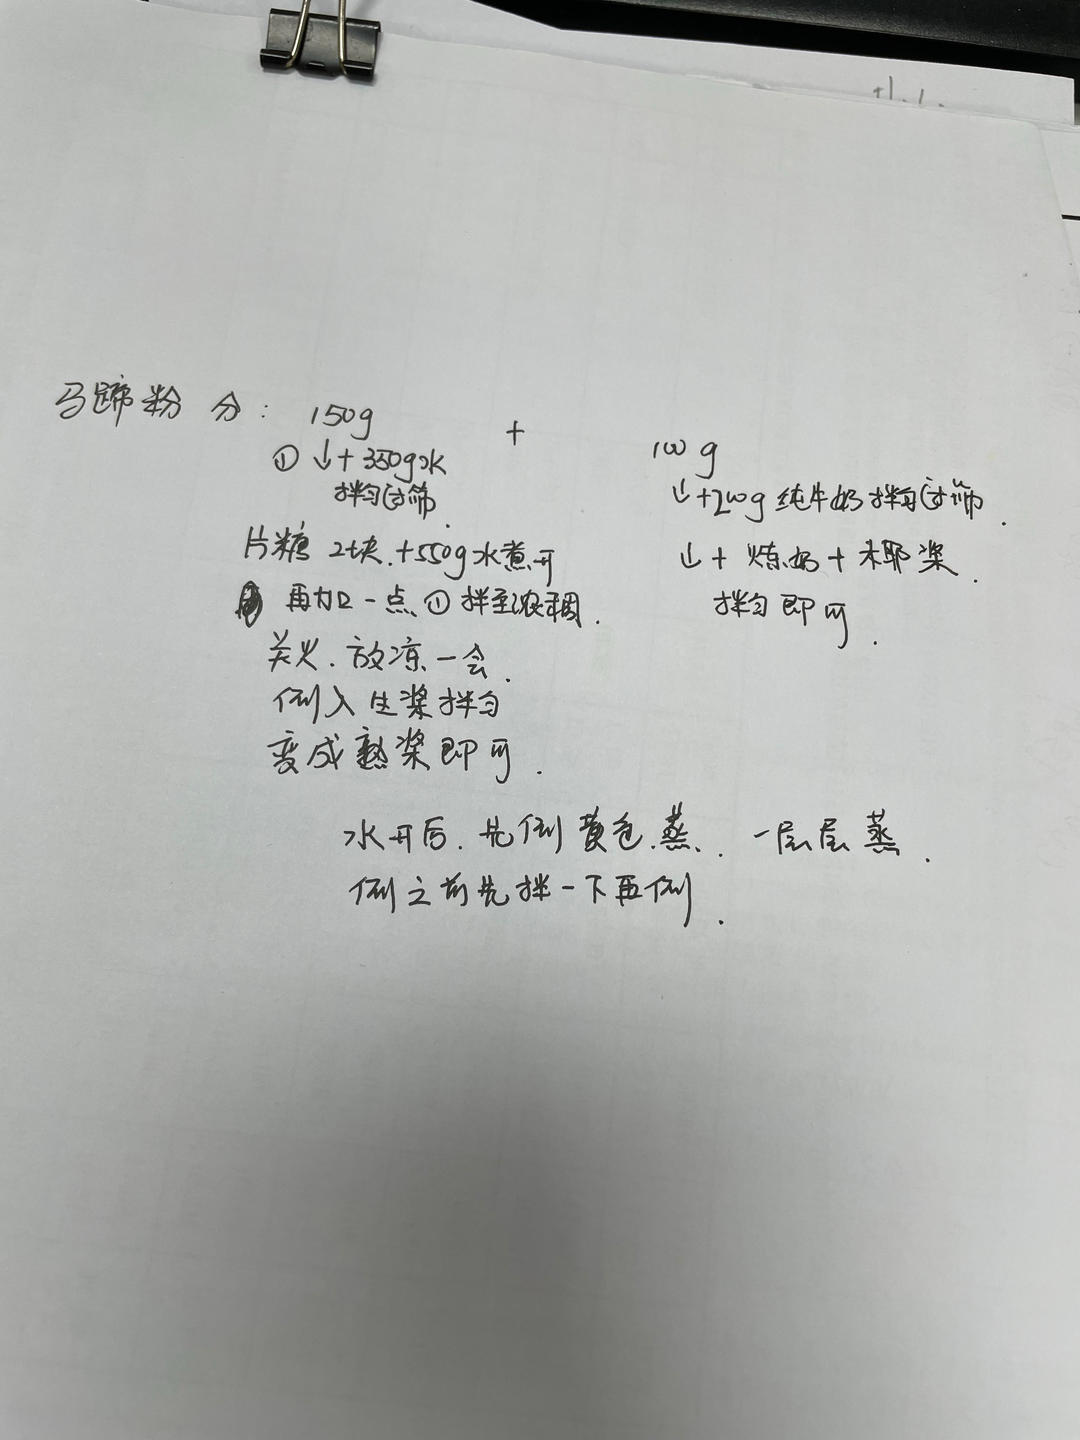 马蹄粉 分: 150g + 100g
① ↓+350g水
拌匀过筛.
片糖 2块.+550g水煮开
再加一点①拌至浓稠.
关火.放凉一会.
倒入生浆拌匀
变成熟浆即可.
↓+200g纯牛奶拌匀过筛.
↓+炼奶+椰浆.
拌匀即可.
水开后.先倒黄色.蒸. 一层层蒸.
倒之前先拌一下再倒.